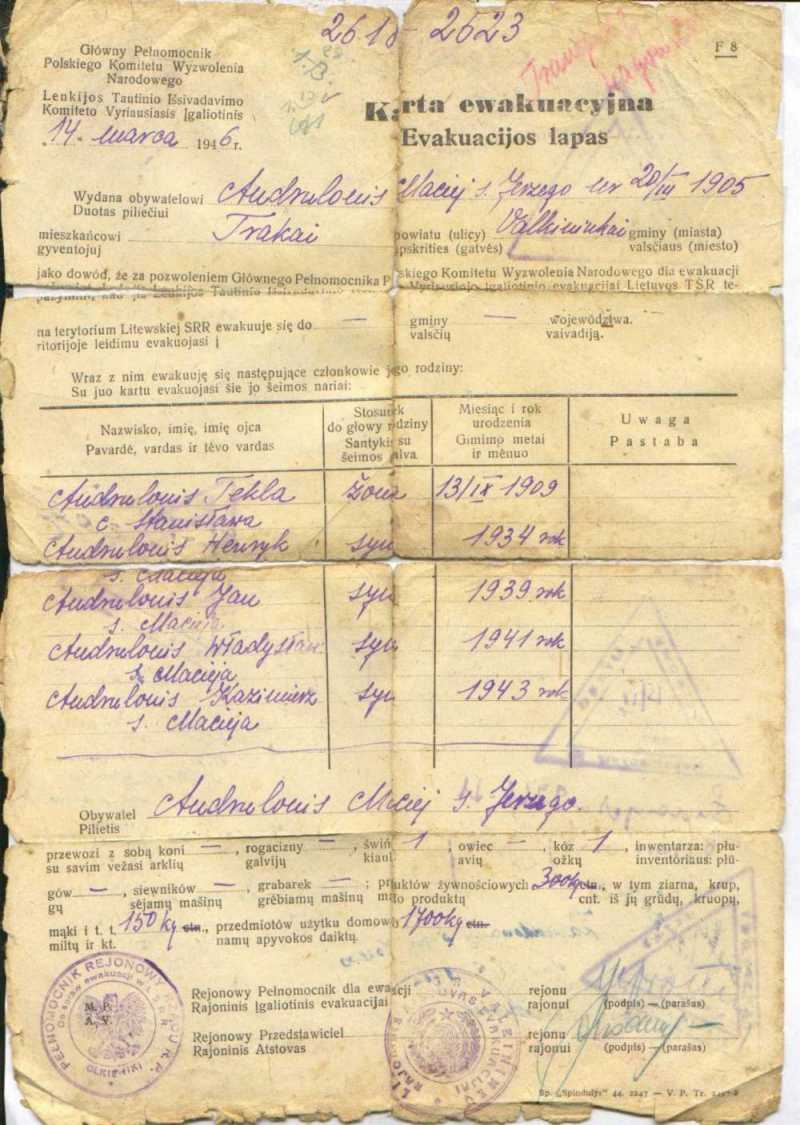 2618-2623
F 8
Główny Pełnomocnik
Polskiego Komitetu Wyzwolenia
Narodowego
Lenkijos Tautinio Išsivadavimo
Komiteto Vyriausiasis Įgaliotinis
"14" marca 1946 r.
Karta ewakuacyjna
Evakuacijos lapas
Wydana obywatelowi Andrulonis Maciej s. Jerzego ur 20/III 1905
Duotas piliečiui
mieszkańcowi Trakai powiatu (ulicy) Valkininkai gminy (miasta)
gyventojui apskrities (gatvės) valsčiaus (miesto)
jako dowód, że za pozwoleniem Głównego Pełnomocnika P skiego Komitetu Wyzwolenia Narodowego dla ewakuacji
Lenkijos Tautinio Vyriausiojo įgaliotinio evakuacijai Lietuvos TSR te-
na terytorium Litewskiej SRR ewakuuje się do — gminy — województwa.
ritorijoje leidimu evakuojasi į valsčių vaivadiją.
Wraz z nim ewakuuję się następujące członkowie jego rodziny:
Su juo kartu evakuojasi šie jo šeimos nariai:
Nazwisko, imię, imię ojca
Pavardė, vardas ir tėvo vardas
Stosunek
do głowy rodziny
Santykis su
šeimos galva
Miesiąc i rok
urodzenia
Gimimo metai
ir mėnuo
Uwaga
Pastaba
Andrulonis Tekla żona 13/IX 1909
c. Stanisława
Andrulonis Henryk syn 1934 rok
s. Macieja
Andrulonis Jan syn 1939 rok
s. Macieja
Andrulonis Władysław syn 1941 rok
s. Macieja
Andrulonis Kazimierz syn 1943 rok
s. Macieja
Obywatel Andrulonis Maciej s. Jerzego.
Pilietis
przewozi z sobą koni —, rogacizny —, świń 1, owiec —, kóz 1, inwentarza: płu-
su savim vežasi arklių galvijų kiaul avių ožkų inventoriaus: plū-
gów —, siewników —, grabarek —; pr duktów żywnościowych 300kg ctn., w tym ziarna, krup,
gų sėjamų mašinų grėbiamų mašinų ma to produktų cnt. iš jų grūdų, kruopų,
mąki i t. t. 150 kg ctn., przedmiotów użytku domowo 1700kg ctn.
miltų ir kt. namų apyvokos daiktų.
PEŁNOMOCNIK REJONOWY RZĄDU R.P.
Do spraw ewakuacji w
OLKIENIKI
M. P.
A. V.
Rejonowy Pełnomocnik dla ewakuacji rejonu
Rajoninis Įgaliotinis evakuacijai rajonui (podpis) — (parašas)
Rejonowy Przedstawiciel rejonu
Rajoninis Atstovas rajonui (podpis) — (parašas)
Sp. „Spindulys" 44. 2247 — V. P. Tr.